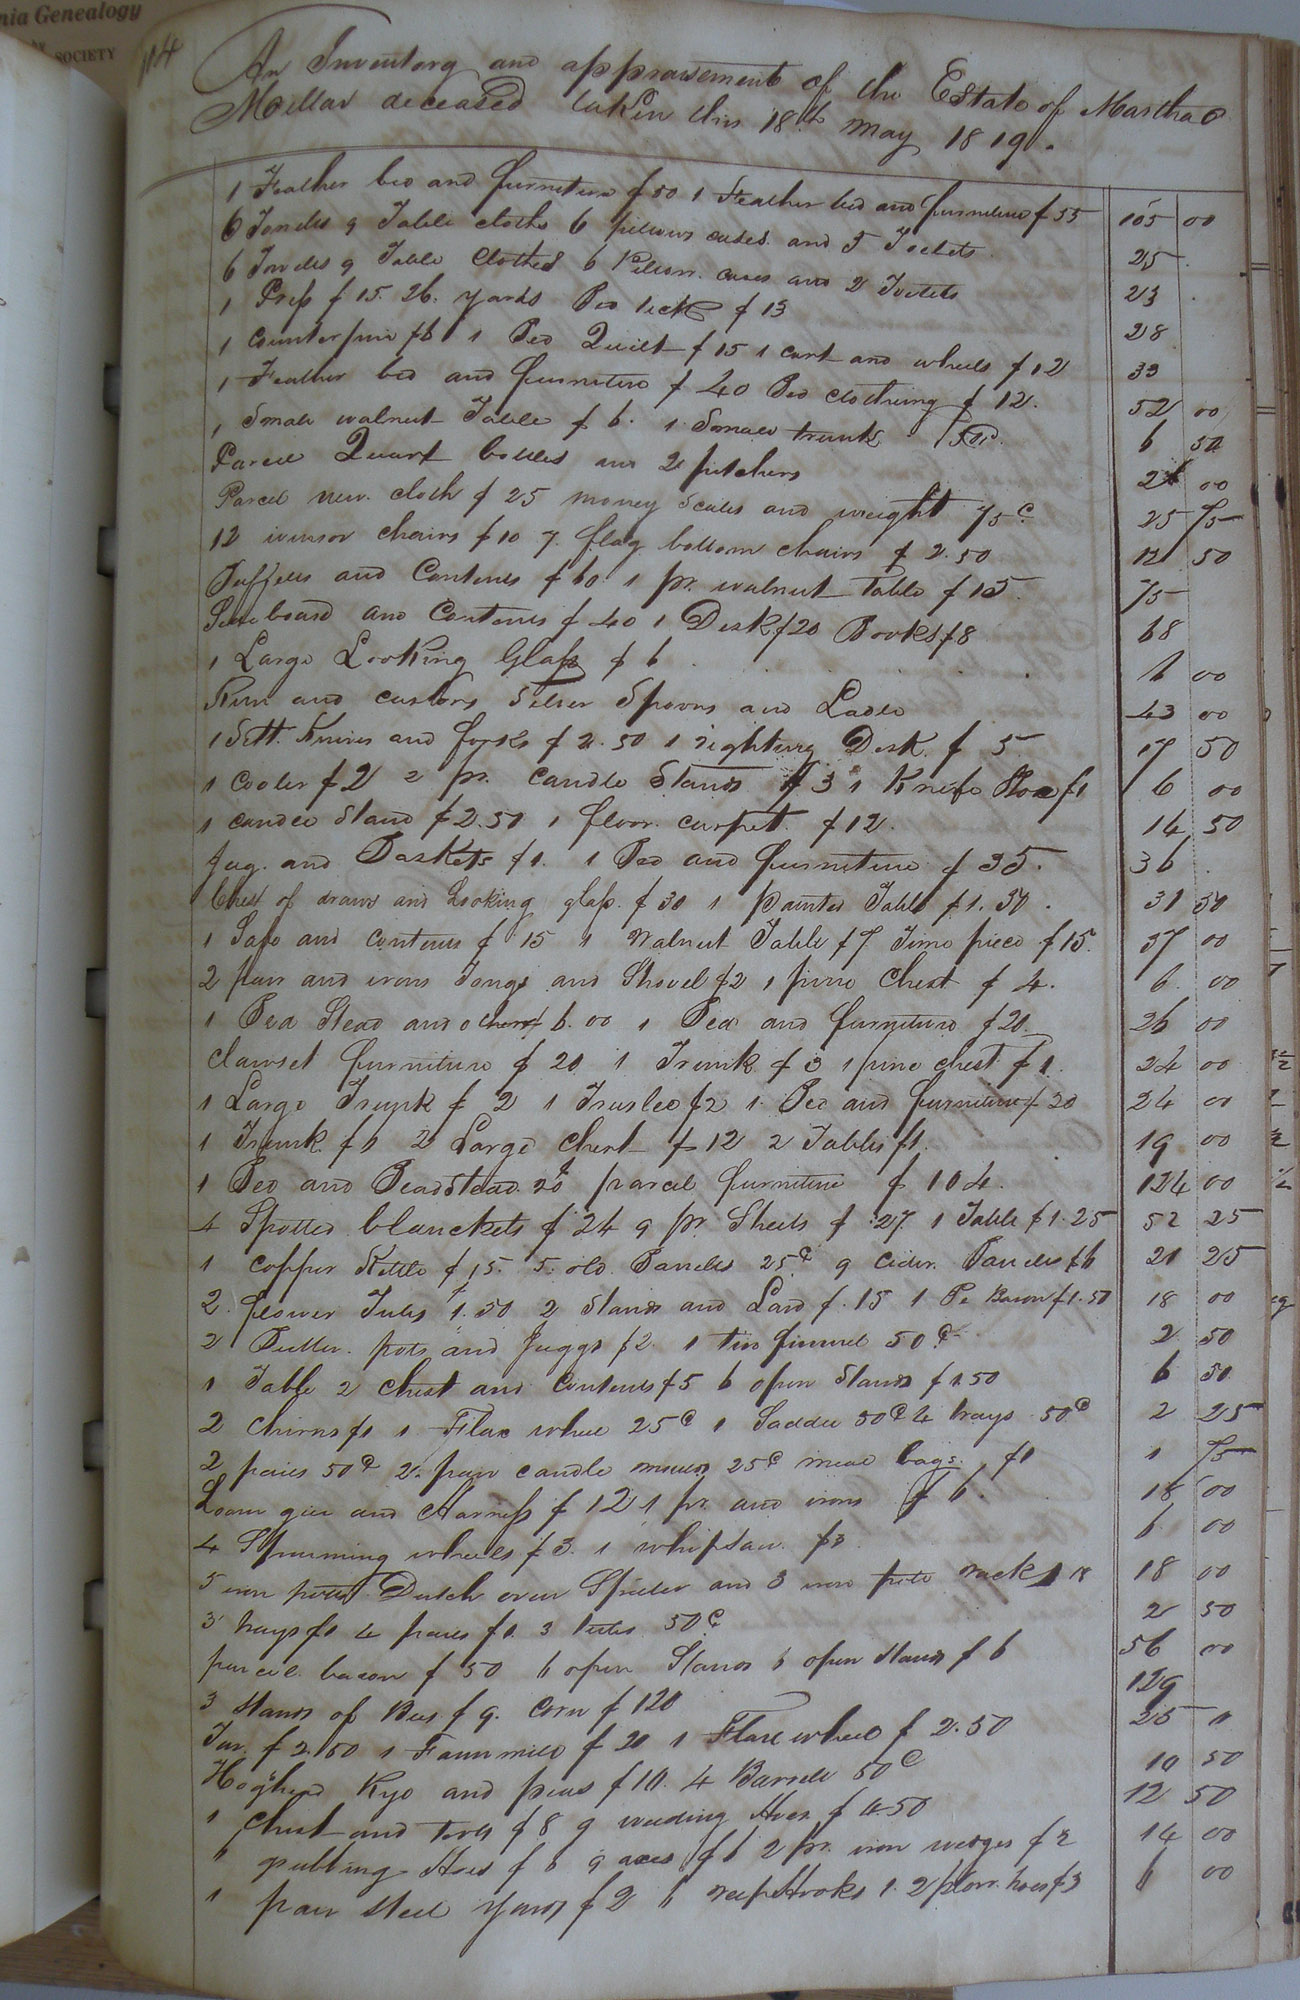 nia Genealogy
SOCIETY
114
An Inventory and appraisement of the Estate of Martha
Millar deceased taken this 18th May 1819.
1 Feather bed and furniture $50 1 Feather bed and furniture $55 105 00
6 Towells 9 Table cloths 6 pillows cases and 5 Toilets 25
6 Towels 9 Table Clothes 6 Pillow cases and 2 Toilets 23
1 Press $15. 26. yards Bed tick $13 28
1 Counterpin $6 1 Bed Quilt $15 1 cart and wheels $12 33
1 Feather bed and furniture $40 Bed clothing $12. 52 00
1 Small walnut Table $6. 1 Small trunk 50c. 6 50
Parcel Quart bottles and 2 pitchers 2 00
Parcel new cloth $25 money Scales and weight 75c 25 75
12 winsor chairs $10 7 flag bottom chairs $2.50 12 50
and Contents $60 1 pr. walnut table $15 75
Sideboard and Contents $40 1 Desk $20 Books $8 68
1 Large Looking Glass $6 6 00
and castors Silver Spoons and Ladle 43 00
1 Sett. Knives and forks $2.50 1 Desk $ 5 17 50
1 Cooler $2 2 pr. Candle Stands $3 1 Knife Box $1 6 00
1 candle Stand $2.50 1 floor carpet $12. 14 50
Jug. and Baskets $1. 1 Bed and furniture $35. 36
Chest of draws and Looking glass $30 1 painted Table $1.50. 31 50
1 Safe and contents $15 1 Walnut Table $7 Time piece $15. 37 00
2 pair and irons Tongs and Shovel $2 1 pine Chest $4. 6 00
1 Bed Stead and others $6.00 1 Bed and furniture $20. 26 00
Clawset furniture $20 1 Trunk $3 1 pine chest $1. 24 00
1 Large Trunk $2 1 $2 1 Bed and furniture $20 24 00
1 Trunk $1 2 Large Chest $12 2 Tables $1. 19 00
1 Bed and Beadstead $20 parcel furniture $104. 124 00
4 Spotted blanckets $24 9 pr. Sheets $27 1 Table $1.25 52 25
1 copper Kettle $15. 5 old Barrels 25c 9 Cider Barrels $6 21 25
2 flower Tubs $1.50 2 Stands and Lard $15 1 Bacon $1.50 18 00
2 Butter pots and Juggs $2 1 tin funnel 50c 2 50
1 Table 2 Chest and contents $5 6 open Stands $1.50 6 50
2 Churns $1 1 Flax wheel 25c 1 Saddle 50c 4 trays 50c 2 25
2 pails 50c 2 pair candle 25c meal bags $1 1 75
Loom gier and Harness $12 1 pr. and irons $6. 18 00
4 Spinning wheels $3 1 whipsaw $3 6 00
5 iron potts Dutch oven Spider and 3 iron pots rack 18 18 00
3 trays $1 4 $1 3 50c 2 50
parcel bacon $50 6 open Stands 6 open stands $6 56 00
3 stands of Bees $9. Corn $120 129
$2.50 1 Fann mill $20 1 Flax wheel $2.50 25
Hogshead Rye and peas $10. 4 Barrels 50c 10 50
1 Chest and tools $8 9 weeding Hoes $4.50 12 50
6 grubbing Hoes $6 9 axes $6 2 pr. iron wedges $2 14 00
1 pair steel yards $2 6 reap Hooks 1. 2 plow hoes $3 6 00